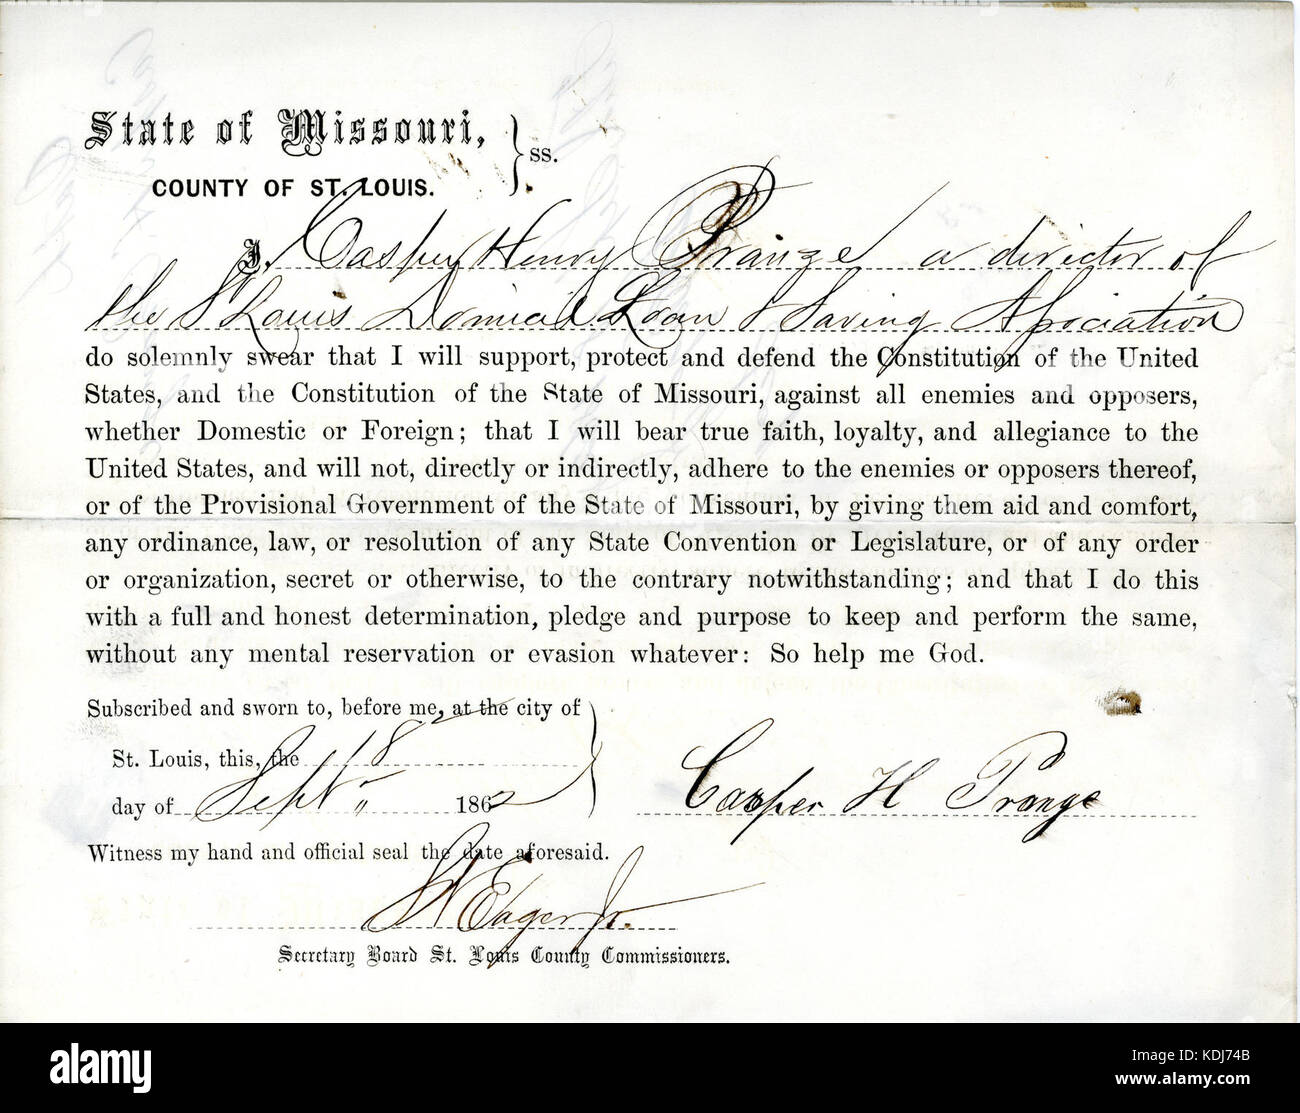 State of Missouri, } ss.
COUNTY OF ST. LOUIS.
I, Casper Henry Prange a director of
the St Louis Domicil Loan & Saving Association
do solemnly swear that I will support, protect and defend the Constitution of the United
States, and the Constitution of the State of Missouri, against all enemies and opposers,
whether Domestic or Foreign; that I will bear true faith, loyalty, and allegiance to the
United States, and will not, directly or indirectly, adhere to the enemies or opposers thereof,
or of the Provisional Government of the State of Missouri, by giving them aid and comfort,
any ordinance, law, or resolution of any State Convention or Legislature, or of any order
or organization, secret or otherwise, to the contrary notwithstanding; and that I do this
with a full and honest determination, pledge and purpose to keep and perform the same,
without any mental reservation or evasion whatever: So help me God.
Subscribed and sworn to, before me, at the city of
St. Louis, this, the 18
day of Sept 1862
Casper H Prange
Witness my hand and official seal the date aforesaid.
St. W Eager Jr.
Secretary Board St. Louis County Commissioners.
alamy
Image ID: KDJ74B
www.alamy.com